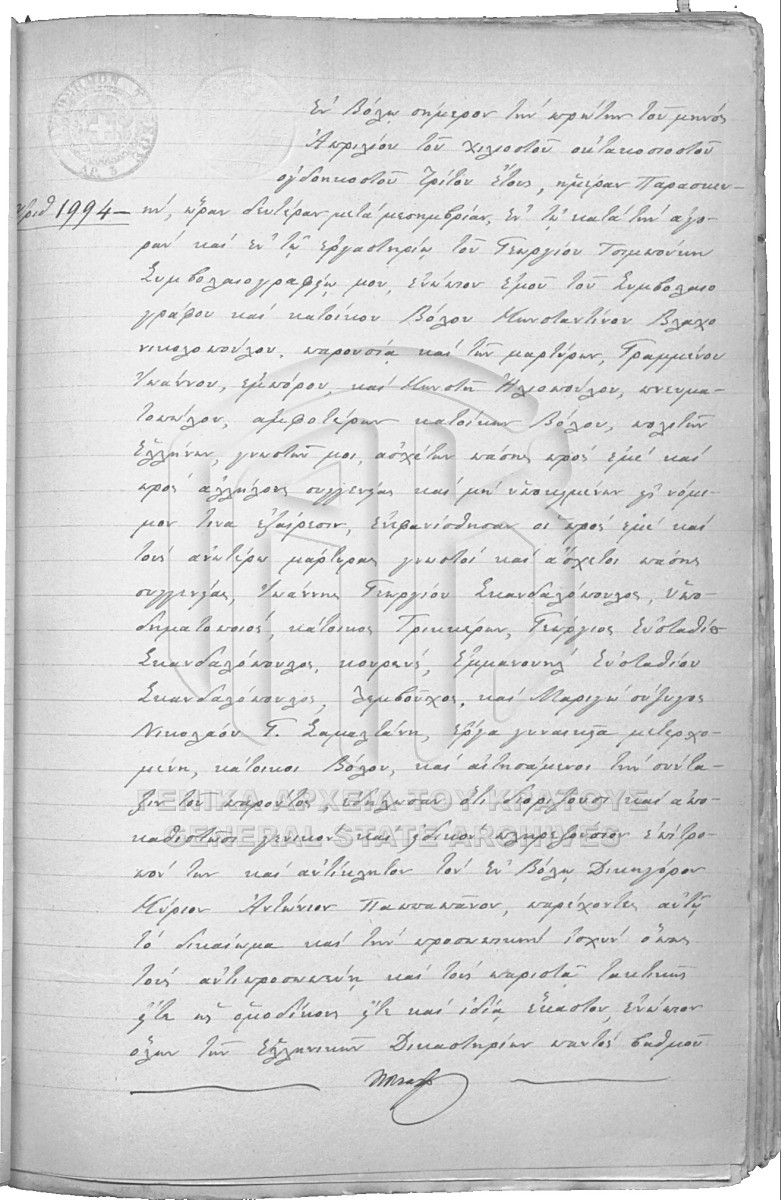 Ἐν Βόλῳ σήμερον τὴν πρώτην τοῦ μηνὸς
Ἀπριλίου τοῦ χιλιοστοῦ ὀκτακοσιοστοῦ
ὀγδοηκοστοῦ τρίτου ἔτους, ἡμέραν Παρασκευ-
Ἀριθ 1994 —
ήν, ὥραν δευτέραν μετὰ μεσημβρίαν, ἐν τῷ κατὰ τὴν ἀγο-
ρὰν καὶ ἐν τῷ ἐργαστηρίῳ τοῦ Γεωργίου Τσιμπούκη
Συμβολαιογραφείῳ μου, ἐνώπιον ἐμοῦ τοῦ Συμβολαιο
γράφου καὶ κατοίκου Βόλου Κωνσταντίνου Βλαχο
νικολοπούλου, παρουσίᾳ καὶ τῶν μαρτύρων, Γραμμένου
Ἰωάννου, ἐμπόρου, καὶ Κωνστῆ Ἠλιοπούλου, πνευμα-
τοπώλου, ἀμφοτέρων κατοίκων Βόλου, πολιτῶν
Ἑλλήνων, γνωστῶν μοι, ἀσχέτων πάσης πρὸς ἐμὲ καὶ
πρὸς ἀλλήλους συγγενείας καὶ μὴ ὑποκειμένων εἰς νόμι-
μον τινα ἐξαίρεσιν, ἐνεφανίσθησαν οἱ πρὸς ἐμὲ καὶ
τοὺς ἀνωτέρω μάρτυρας γνωστοὶ καὶ ἄσχετοι πάσης
συγγενείας, Ἰωάννης Γεωργίου Σκανδαλόπουλος, ὑπο-
δηματοποιός, κάτοικος Τρικκέρων, Γεώργιος Εὐσταθίου
Σκανδαλόπουλος, κουρεύς, Ἐμμανουὴλ Εὐσταθίου
Σκανδαλόπουλος, λεμβοῦχος, καὶ Μαριγὼ σύζυγος
Νικολάου Γ. Σαμαλτάνη, ἔργα γυναικεῖα μετερχο-
μένη, κάτοικοι Βόλου, καὶ αἰτησάμενοι τὴν σύντα-
ξιν τοῦ παρόντος, ἐδήλωσαν ὅτι διορίζουσι καὶ ἀπο-
ΓΕΝΙΚΑ ΑΡΧΕΙΑ ΤΟΥ ΚΡΑΤΟΥΣ
καθιστῶσι γενικὸν καὶ εἰδικὸν πληρεξούσιον ἐπίτρο-
GENERAL STATE ARCHIVES
πόν των καὶ ἀντίκλητον τὸν ἐν Βόλῳ Δικηγόρον
Κύριον Ἀντώνιον Παππαπάνου, παρέχοντες αὐτῷ
τὸ δικαίωμα καὶ τὴν προσωπικὴν ἰσχὺν ὅπως
τοὺς ἀντιπροσωπεύῃ καὶ τοὺς παριστᾷ τακτικῶς
εἴτε ὡς ὁμοδίκους εἴτε καὶ ἰδίᾳ ἕκαστον, ἐνώπιον
ὅλων τῶν Ἑλληνικῶν Δικαστηρίων παντὸς βαθμοῦ